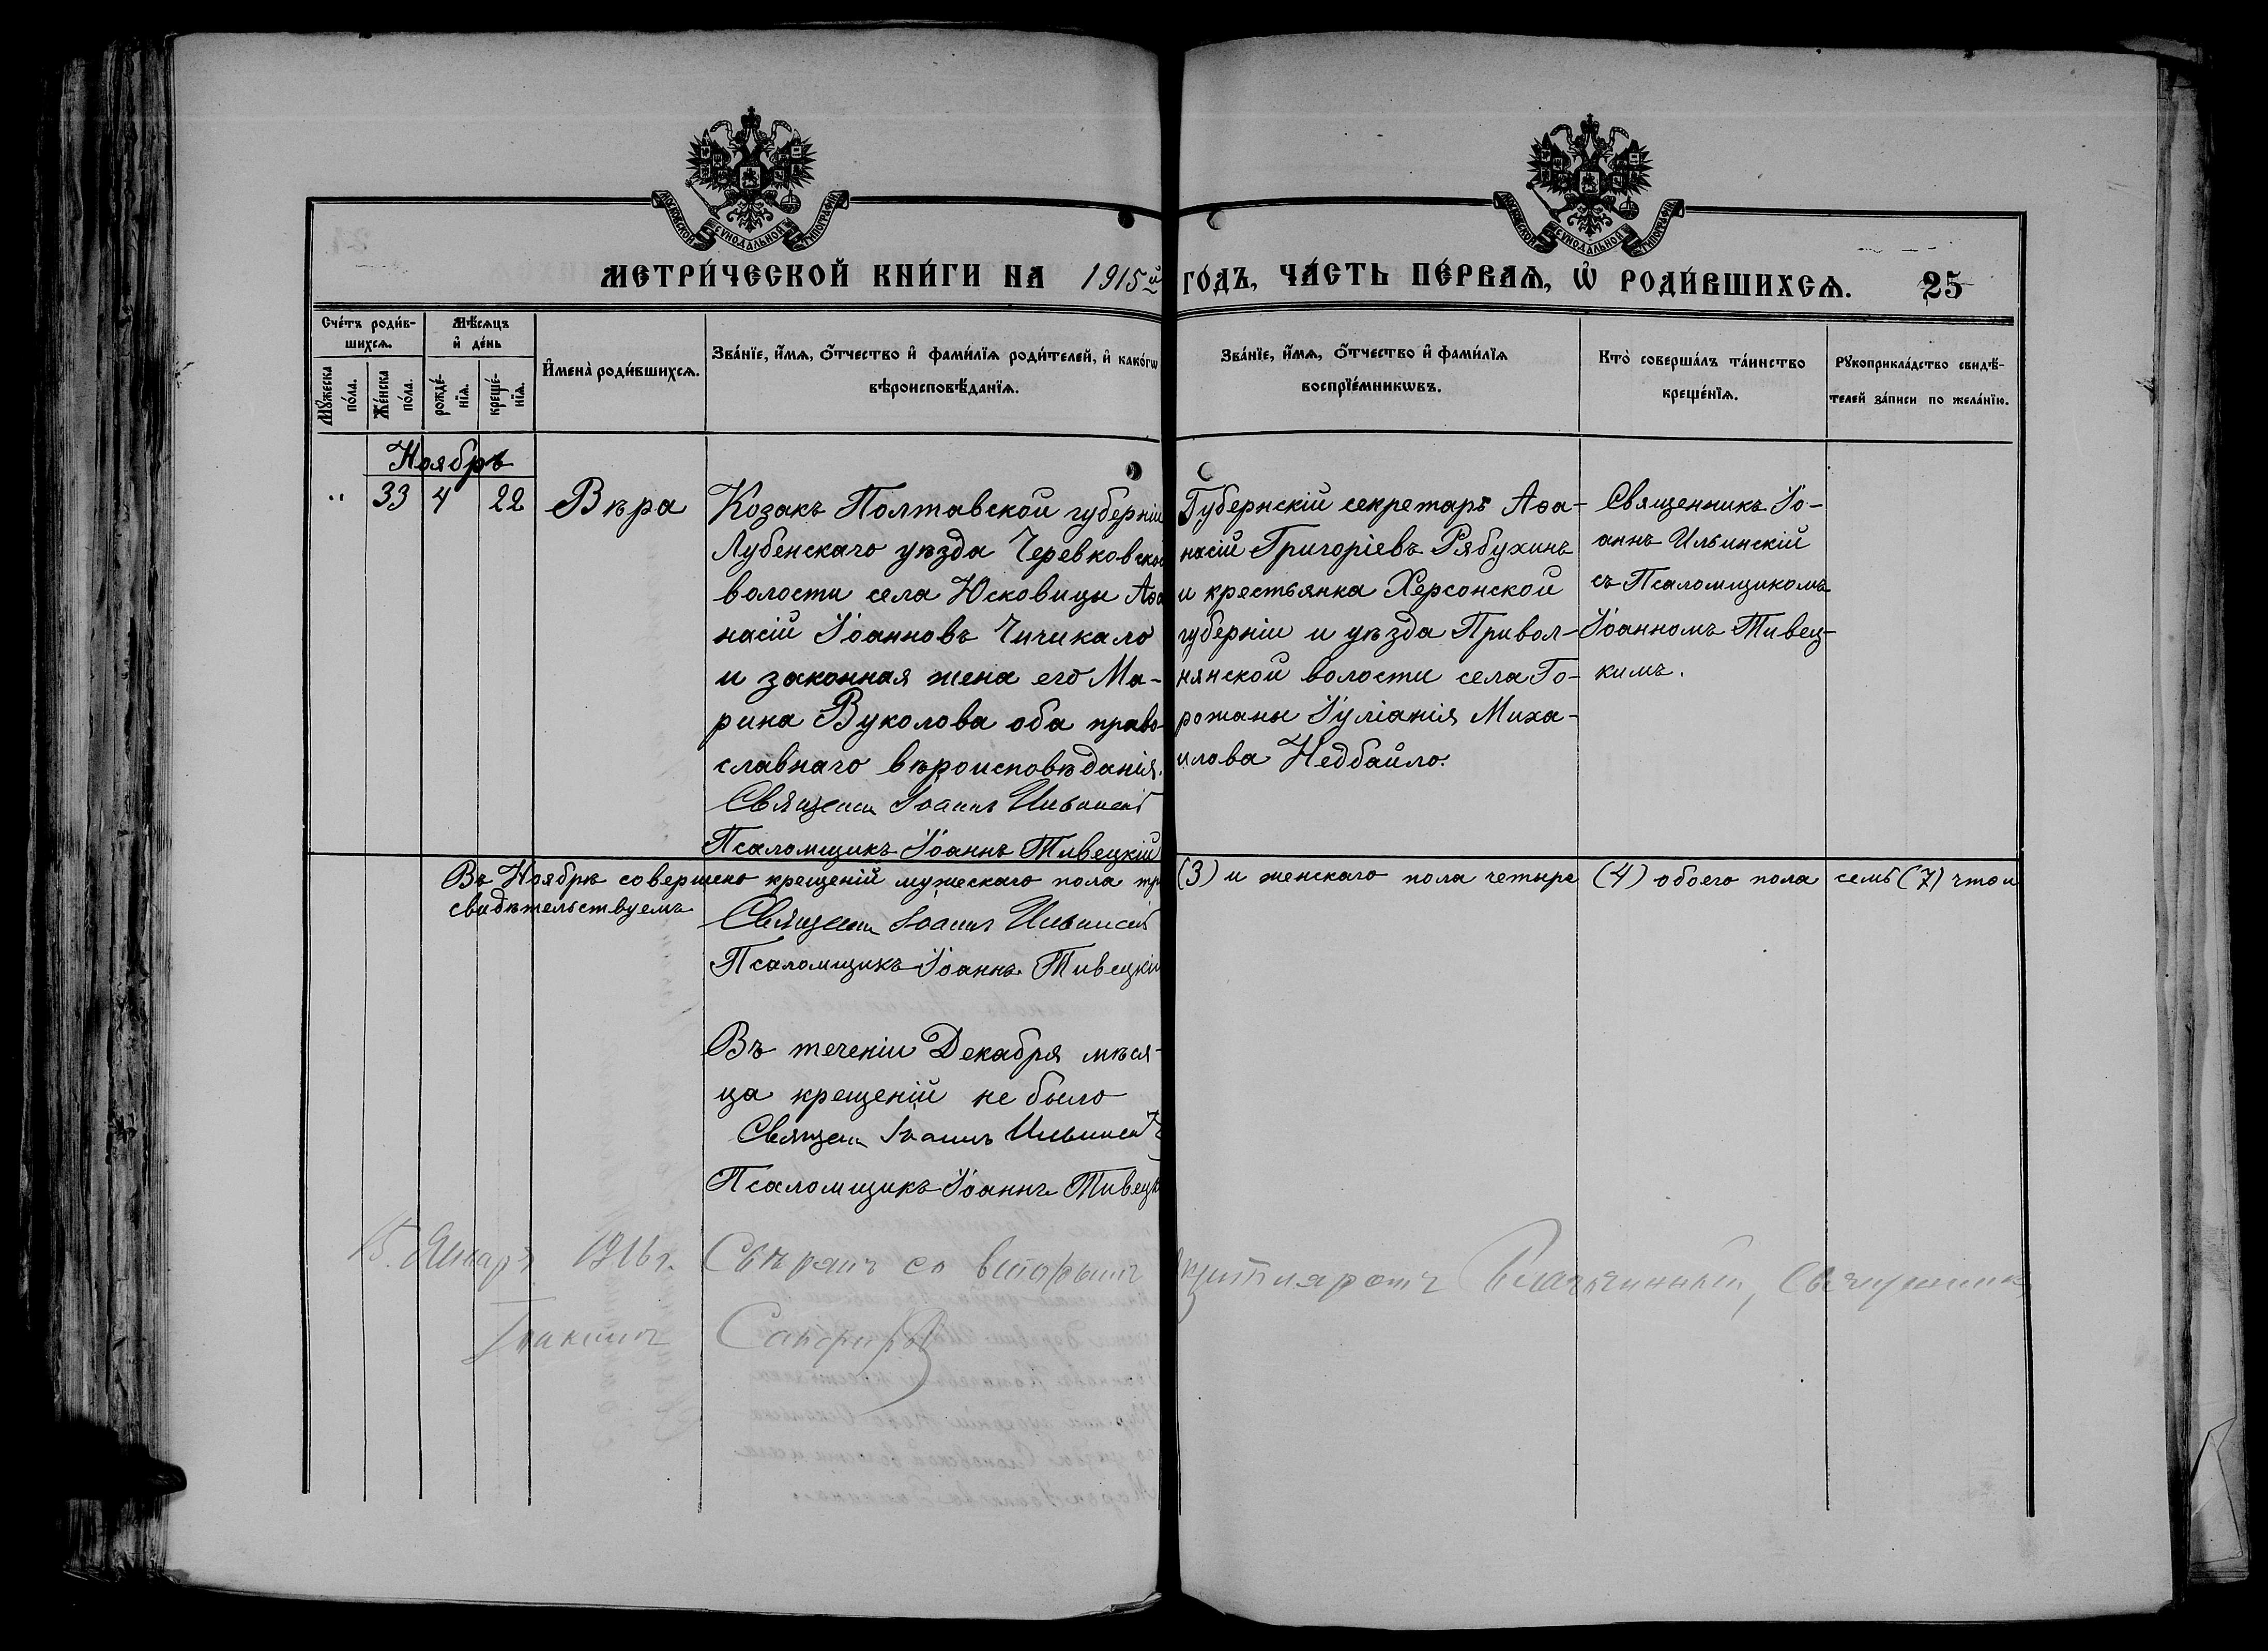 МОСКОВСКОЙ СѴНОДАЛЬНОЙ ТИПОГРАФІИ
МОСКОВСКОЙ СѴНОДАЛЬНОЙ ТИПОГРАФІИ
МЕТРИ́ЧЕСКОЙ КНИ́ГИ НА 1915й ГО́ДЪ, ЧА́СТЬ ПЕ́РВАѦ, Ѡ РОДИ́ВШИХСѦ. 25
Сче́тъ роди́в-
шихсѧ.
Мꙋ́жеска
по́ла.
Же́нска
по́ла.
Мѣ́сѧцъ
и҆ де́нь
рожде́-
нїѧ.
креще́-
нїѧ.
И҆мена̀ роди́вшихсѧ.
Зва́нїе, и҆́мѧ, ѻ҆́тчество и҆ фами́лїѧ роди́телей, и҆ како́гѡ
вѣроисповѣ́данїѧ.
Зва́нїе, и҆́мѧ, ѻ҆́тчество и҆ фами́лїѧ
воспрїе́мникѡвъ.
Кто̀ соверша́лъ та́инство
креще́нїѧ.
Рꙋкоприкла́дство свидѣ́-
телей за́писи по жела́нїю.
Ноябрь
" 33 4 22
Вѣра
Козакъ Полтавской губерніи
Лубенскаго уѣзда Черевковской
волости села Юсковицы Аѳа
насій Іоанновъ Чичикало
и законная жена его Ма-
рина Вуколова оба право
славнаго вѣроисповѣданія.
Священ Іоаннъ Ильинскій
Псаломщикъ Іоаннъ Тивецкій
Губернскій секретарь Аѳа-
насій Григоріевъ Рябухинъ
и крестьянка Херсонской
губерніи и уѣзда Привол-
нянской волости села Го-
рожаны Іуліанія Миха-
илова Недбайло.
Священникъ Іо-
аннъ Ильинскій
съ Псаломщикомъ
Іоанномъ Тивец-
кимъ.
Въ Ноябрѣ совершено крещеній мужескаго пола три (3) и женскаго пола четыре (4) обоего пола семь (7) что и
свидѣтельствуемъ
Священ Іоаннъ Ильинскій
Псаломщикъ Іоаннъ Тивецкій
Въ теченіи Декабря мѣся-
ца крещеній не было
Священ Іоаннъ Ильинскій
Псаломщикъ Іоаннъ Тивецк
15. Январ 1916 г. Свѣрянъ со вторымъ экземпляромъ Благочинный, Священникъ
Іоакимъ